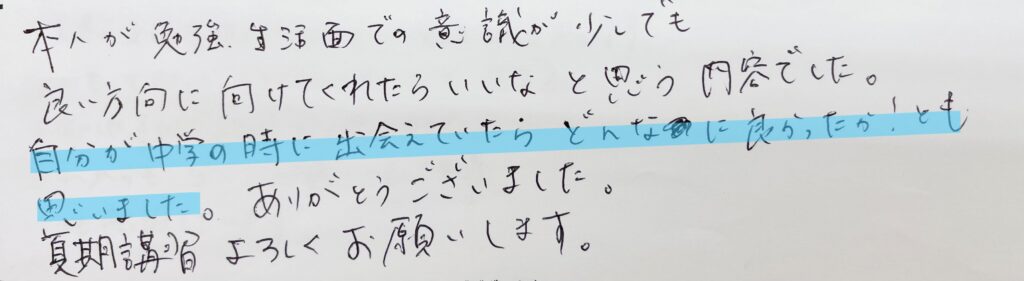 本人が勉強、生活面での意識が少しでも
良い方向に向けてくれたらいいなと思う内容でした。
自分が中学の時に出会えていたらどんなに良かったか!とも
思いました。ありがとうございました。
夏期講習よろしくお願いします。